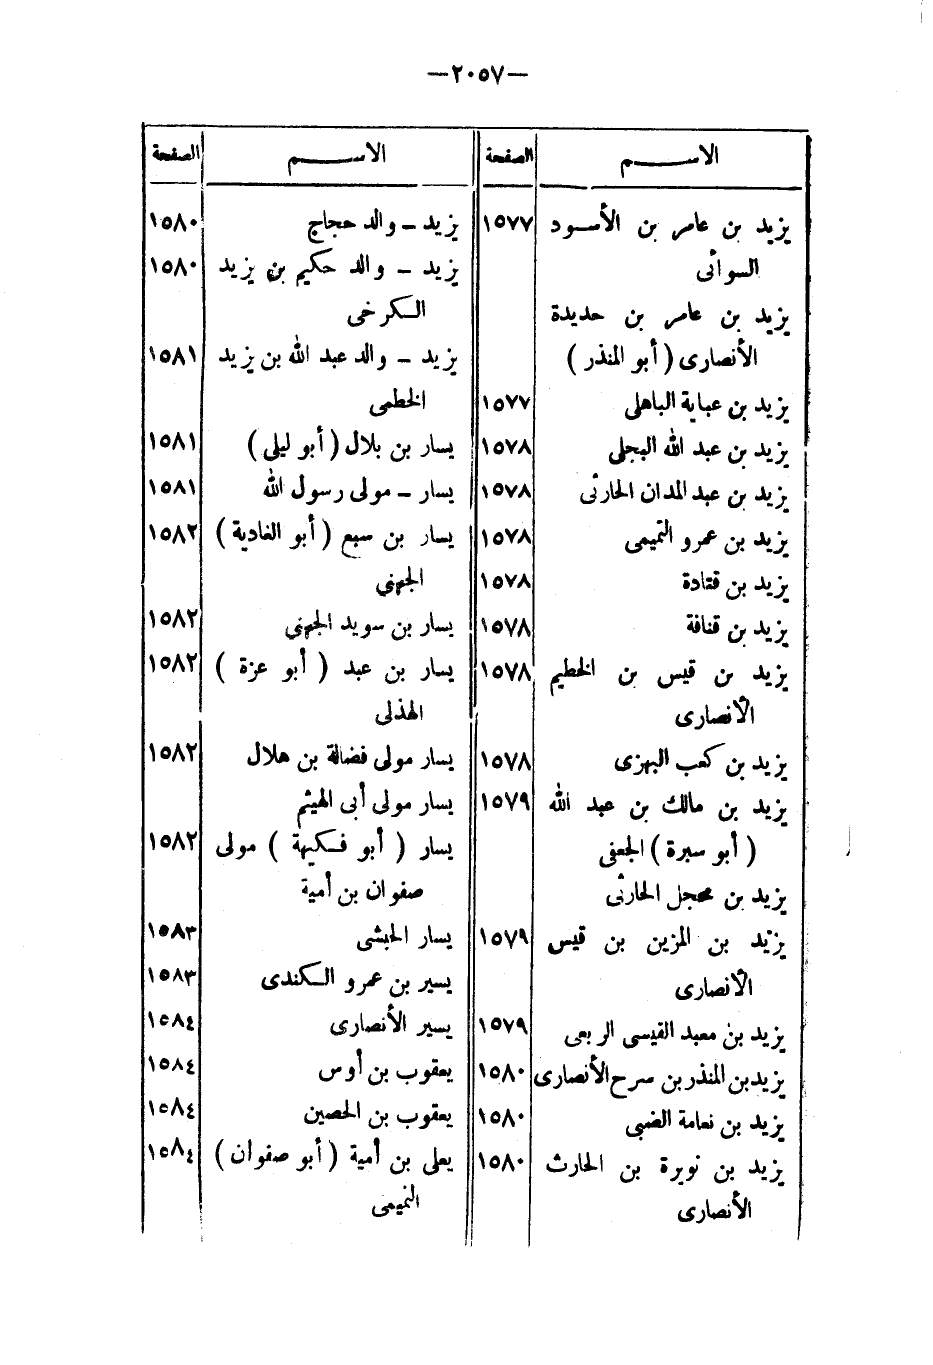 —٢٠٥٧—
الاســـــم
الصفحة
يزيد بن عامر بن الأسود ١٥٧٧
السوائى
يزيد بن عامر بن حديدة
الأنصارى ( أبو المنذر )
يزيد بن عباية الباهلى ١٥٧٧
يزيد بن عبد الله البجلى ١٥٧٨
يزيد بن عبد المدان الحارثى ١٥٧٨
يزيد بن عمرو التميمى ١٥٧٨
يزيد بن قتادة ١٥٧٨
يزيد بن قنافة ١٥٧٨
يزيد بن قيس بن الخطيم ١٥٧٨
الأنصارى
يزيد بن كعب البهزى ١٥٧٨
يزيد بن مالك بن عبد الله ١٥٧٩
( أبو سبرة ) الجعفى
يزيد بن محجل الحارثى
يزيد بن المزين بن قيس ١٥٧٩
الأنصارى
يزيد بن معبد القيسى الربعى ١٥٧٩
يزيد بن المنذر بن سرح الأنصارى ١٥٨٠
يزيد بن نعامة الضبى ١٥٨٠
يزيد بن نويرة بن الحارث ١٥٨٠
الأنصارى
الاســـــم
الصفحة
يزيد – والد حجاج ١٥٨٠
يزيد – والد حكيم بن يزيد ١٥٨٠
الكرخى
يزيد – والد عبد الله بن يزيد ١٥٨١
الخطمى
يسار بن بلال ( أبو ليلى ) ١٥٨١
يسار – مولى رسول الله ١٥٨١
يسار بن سبع ( أبو الغادية ) ١٥٨٢
الجهنى
يسار بن سويد الجهنى ١٥٨٢
يسار بن عبد ( أبو عزة ) ١٥٨٢
الهذلى
يسار مولى فضالة بن هلال ١٥٨٢
يسار مولى أبى الهيثم
يسار ( أبو فكيهة ) مولى ١٥٨٢
صفوان بن أمية
يسار الحبشى ١٥٨٣
يسير بن عمرو الكندى ١٥٨٣
يسير الأنصارى ١٥٨٤
يعقوب بن أوس ١٥٨٤
يعقوب بن الحصين ١٥٨٤
يعلى بن أمية ( أبو صفوان ) ١٥٨٤
التميمى